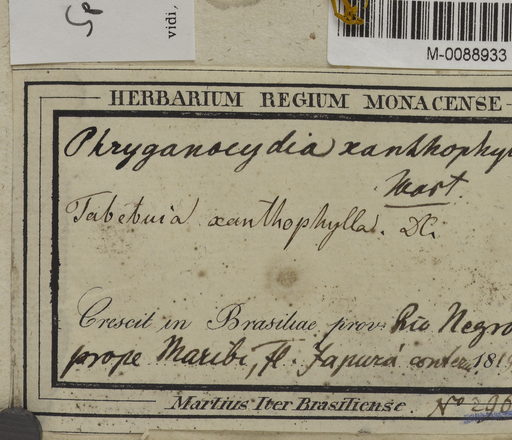 vidi,
M-0088933
HERBARIUM REGIUM MONACENSE
Phryganocydia xanthophyl
Mart.
Tabebuia xanthophylla. DC.
Crescit in Brasiliae prov. Rio Negro
prope Maribi, fl. Japurá 1819
Martius Iter Brasiliense. No